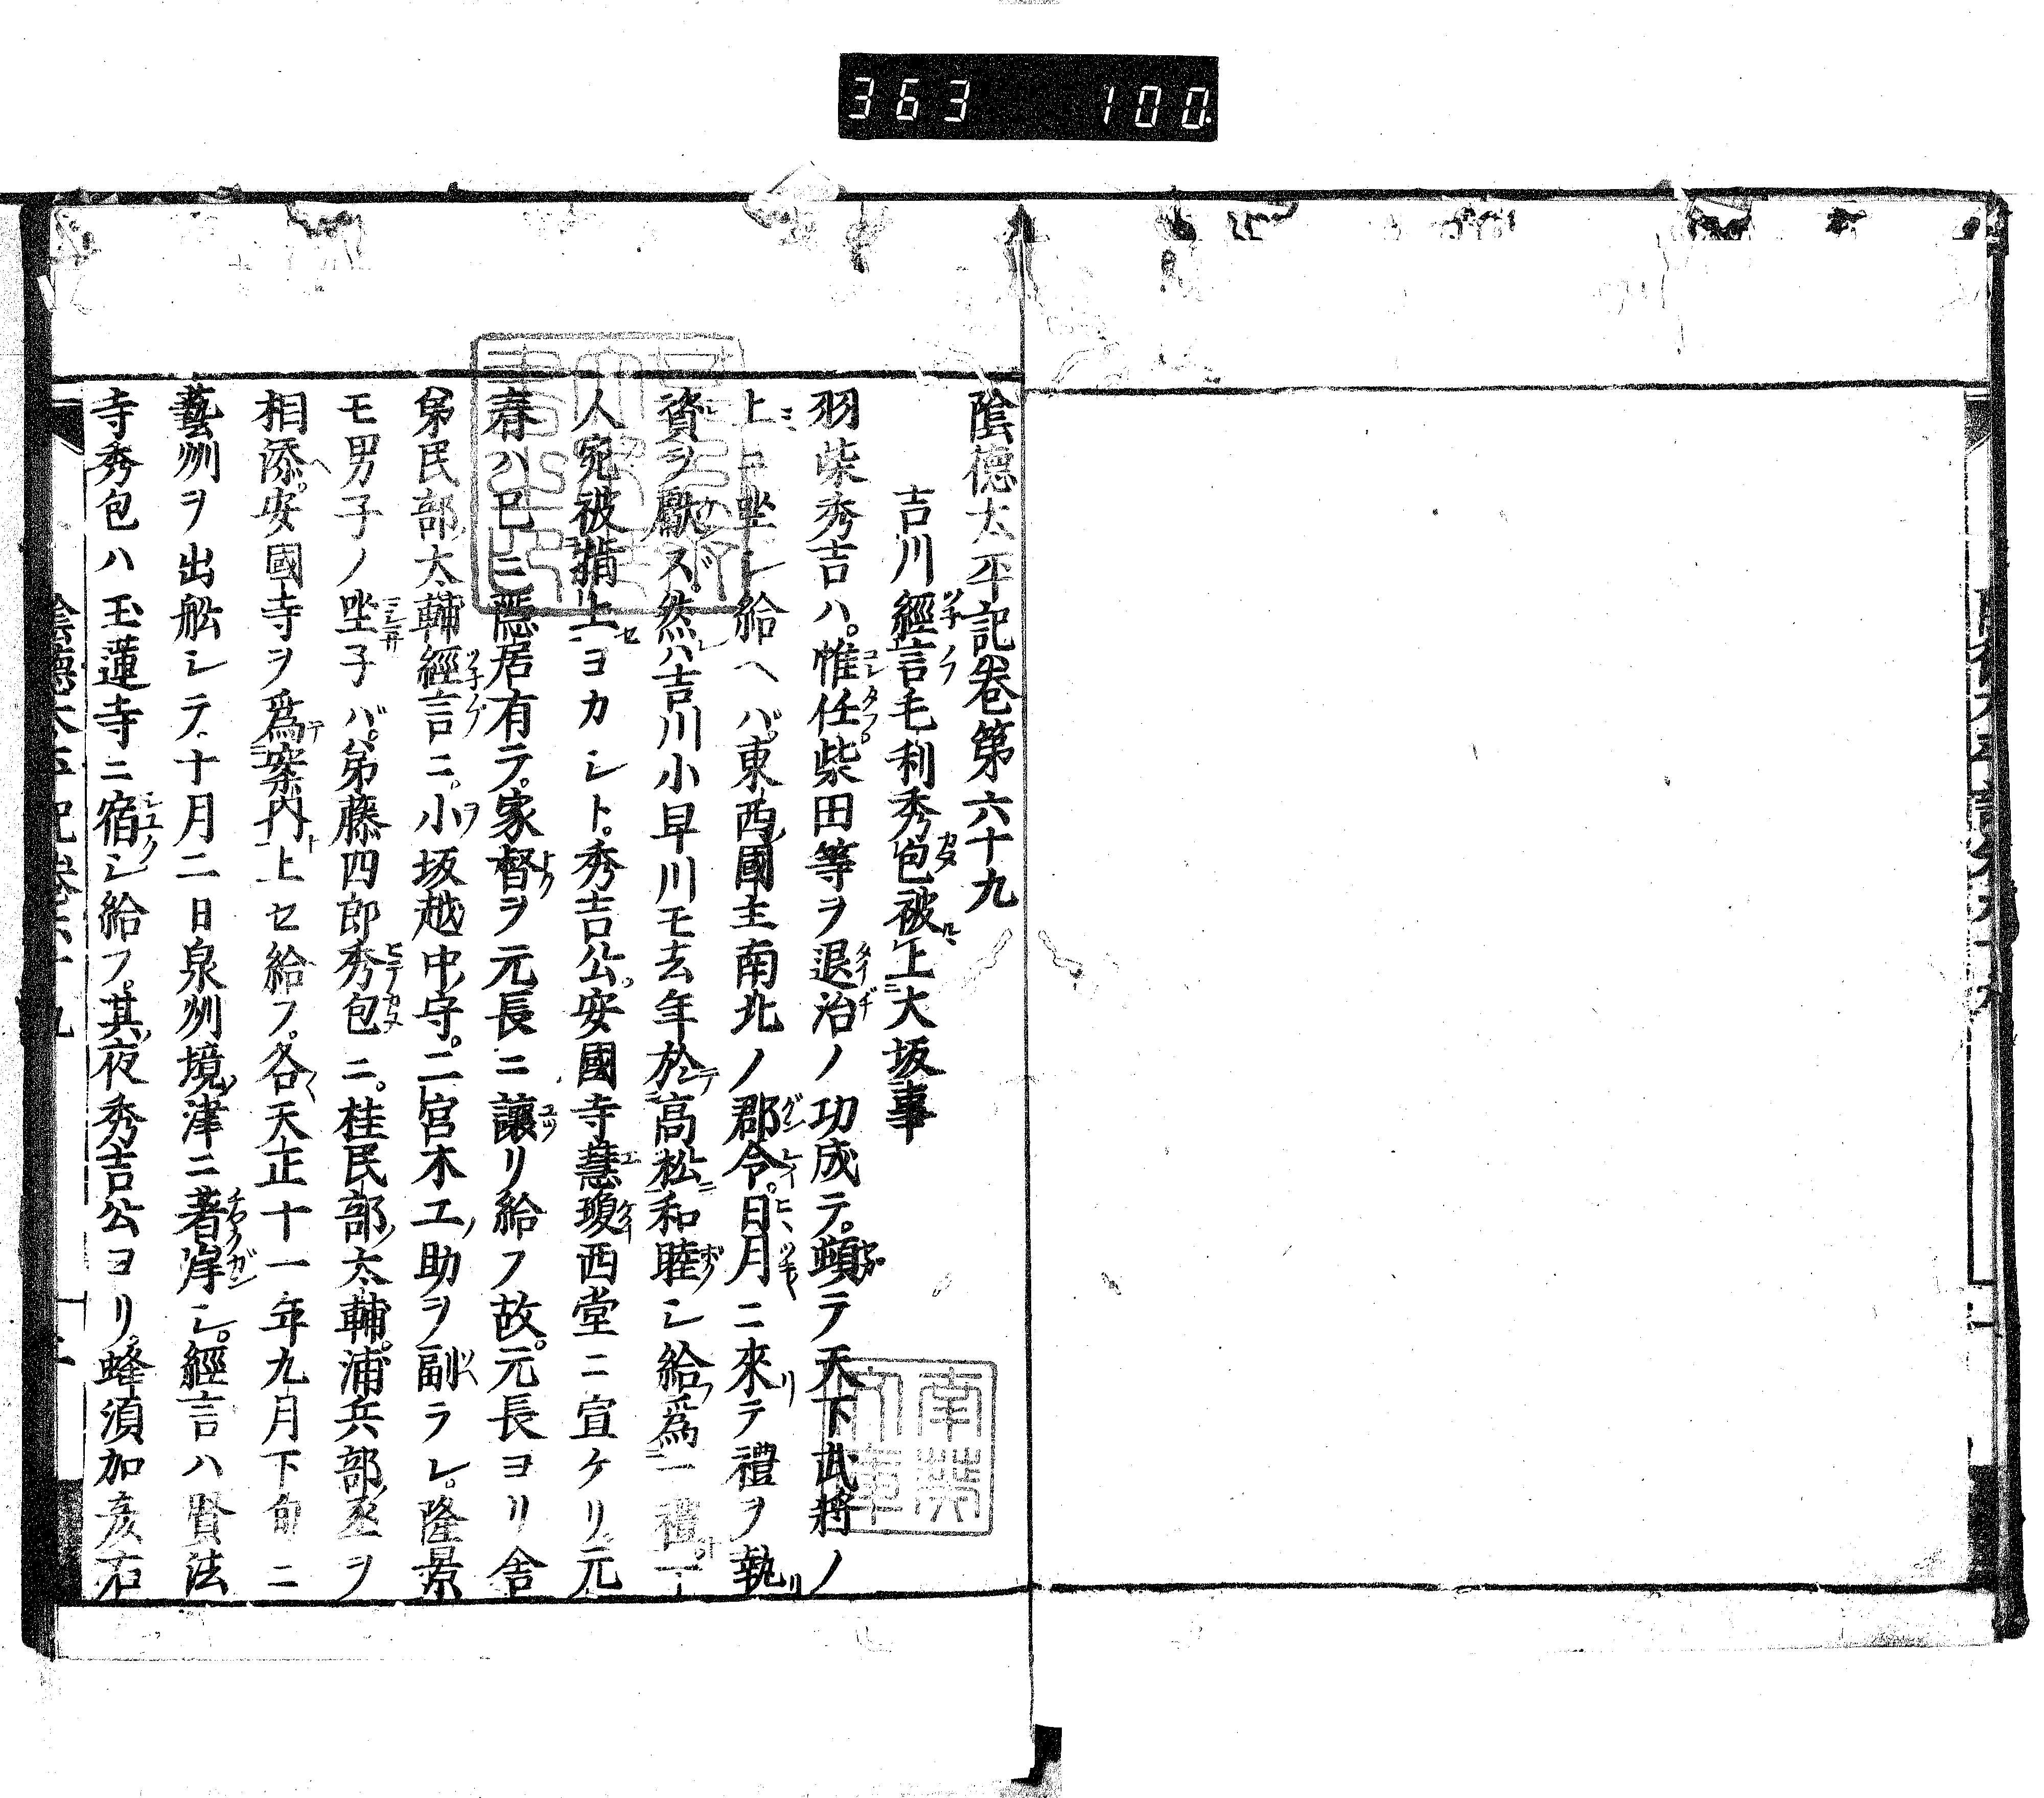 363 100
陰德太平記卷第六十九
吉川經言毛利秀包被上大坂事
羽柴秀吉ハ惟任柴田等ヲ退治ノ功成テ頓テ天下武將ノ
上ニ坐シ給ヘバ東西國主南北ノ郡令日月ニ來テ禮ヲ執
資ヲ獻ズ然ハ吉川小早川モ去年於高松和睦シ給爲一禮
人宛被指上ヨカシト秀吉公安國寺慧瓊西堂ニ宣ケリ元
春ハ已ニ隱居有テ家督ヲ元長ニ讓リ給フ故元長ヨリ舍
弟民部太輔經言ニ小坂越中守二宮木工助ヲ副ラレ隆景
モ男子ノ坐子バ弟藤四郎秀包ニ桂民部太輔浦兵部丞ヲ
相添安國寺ヲ爲案内上セ給フ各天正十一年九月下旬ニ
藝州ヲ出舩シテ十月二日泉州境津ニ著岸シ經言ハ賢法
寺秀包ハ玉蓮寺ニ宿シ給フ其夜秀吉公ヨリ蜂須加彦右
陰德太平記卷六十九